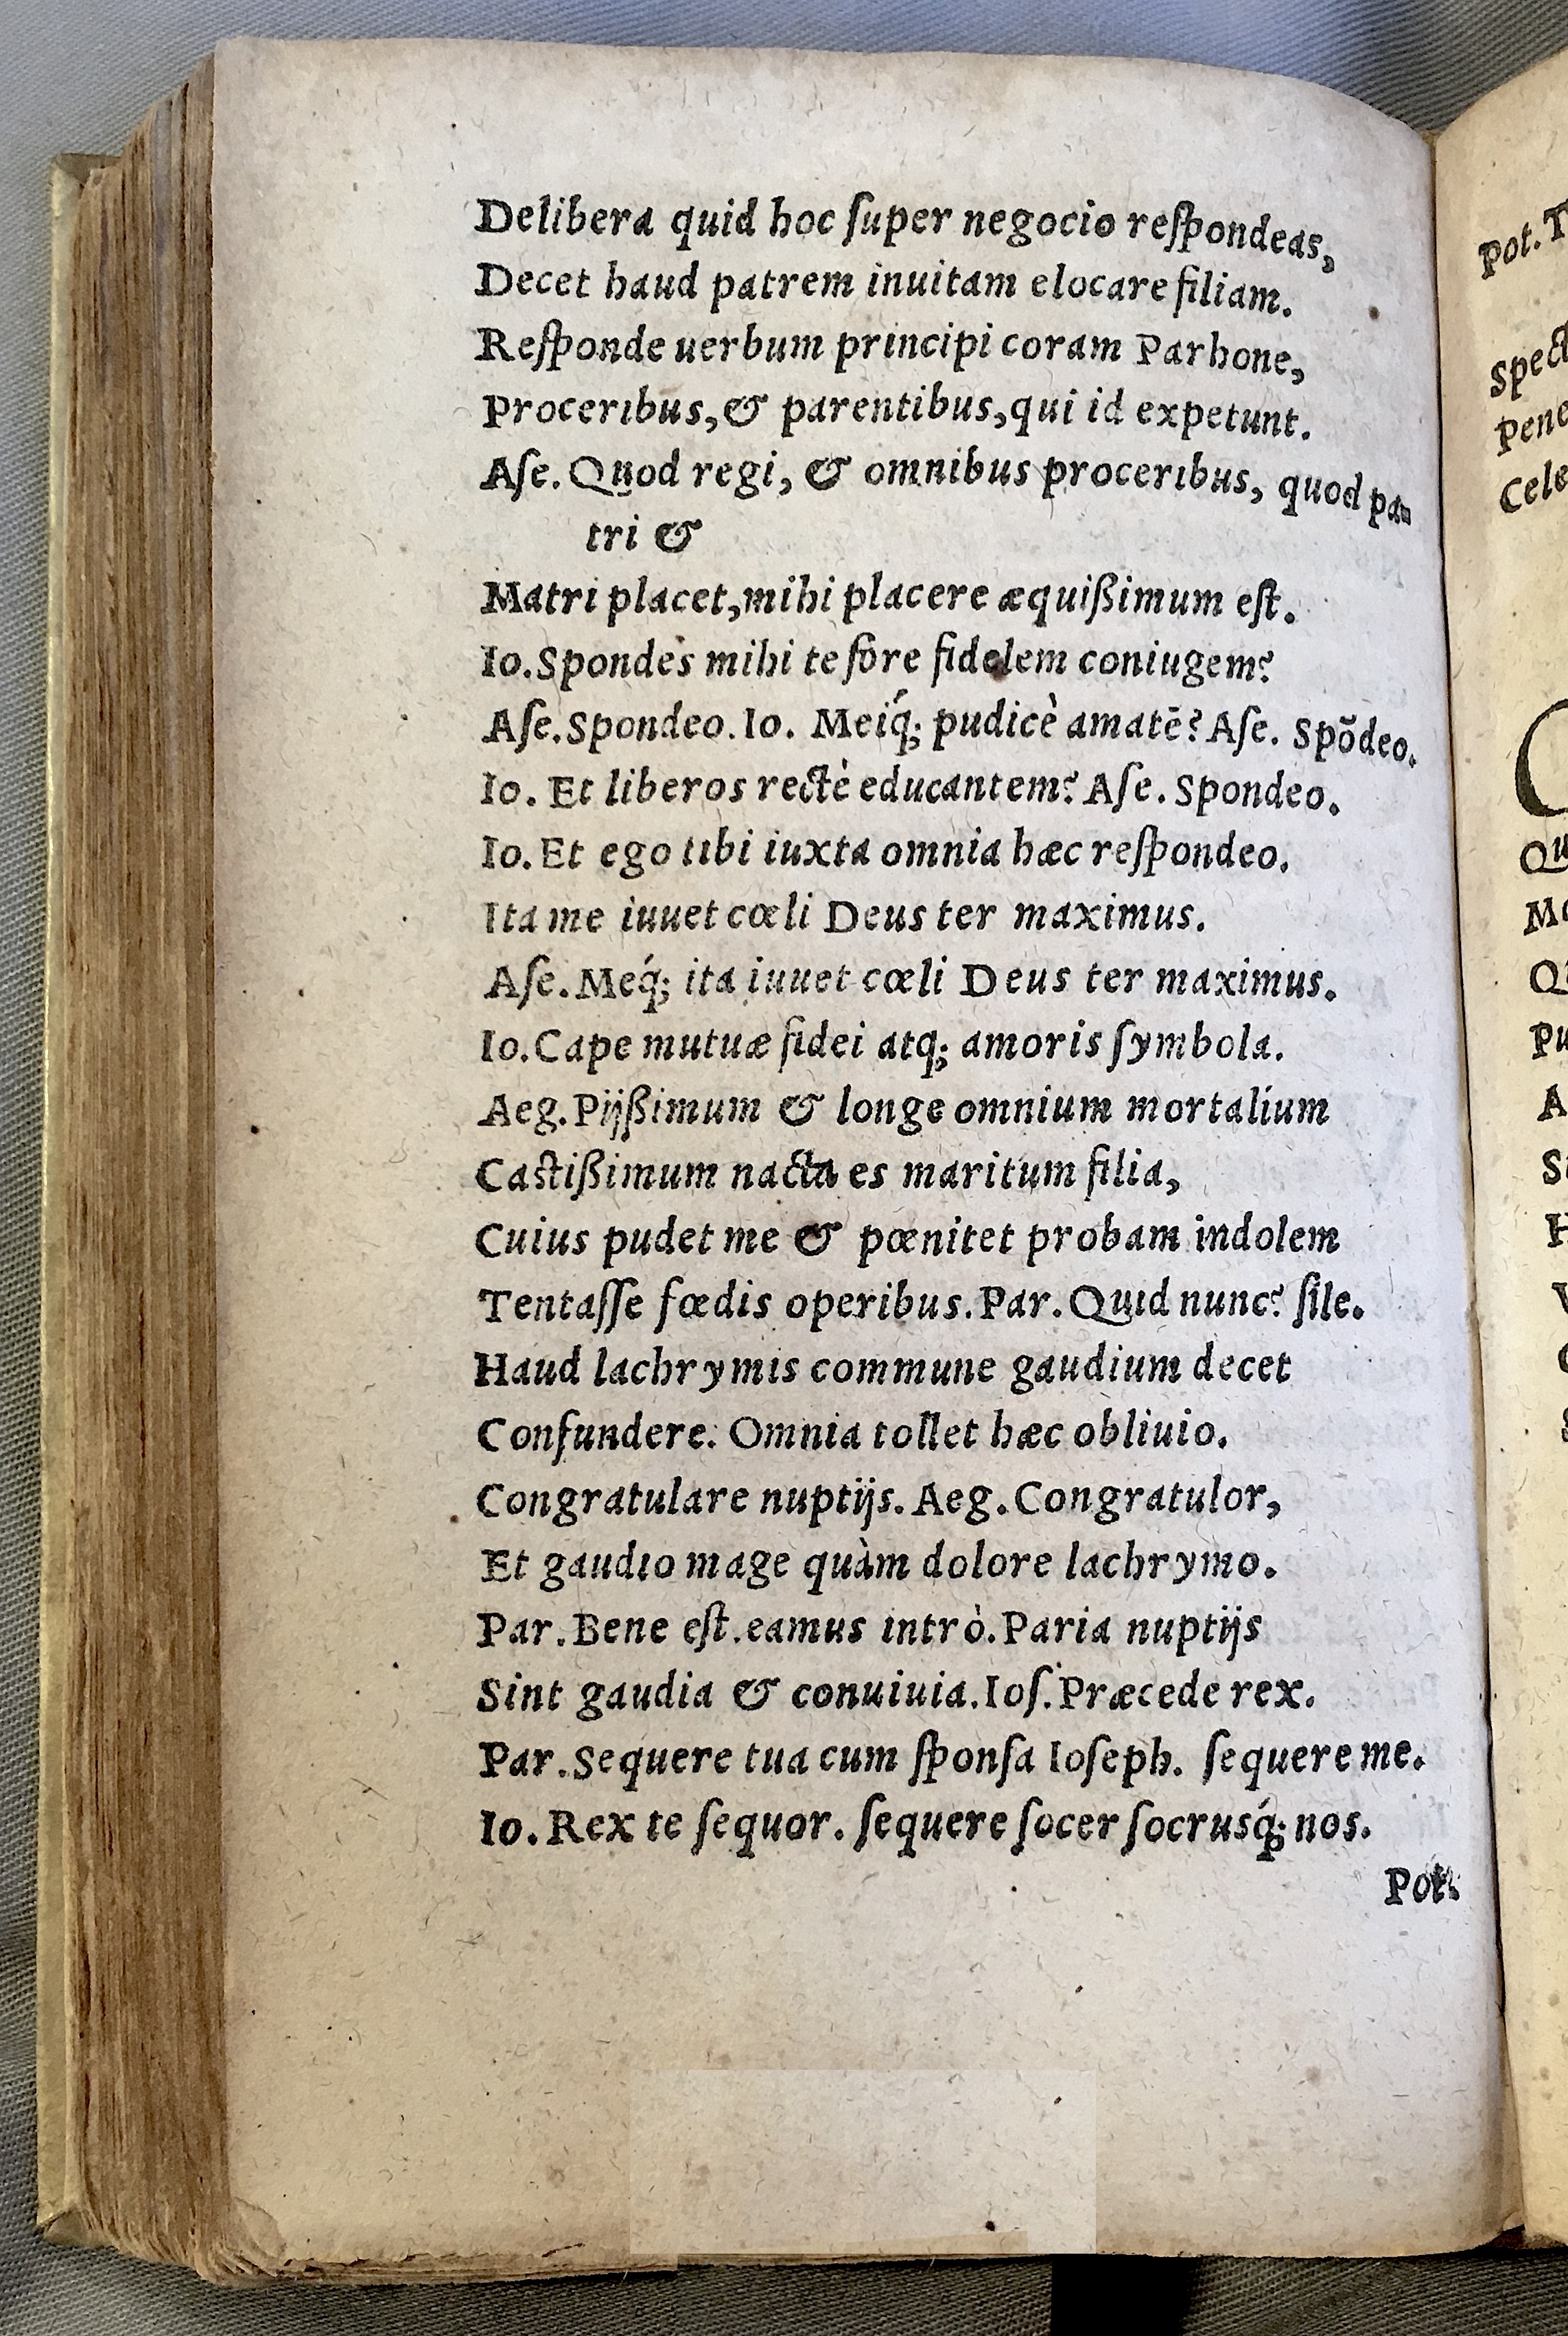 Delibera quid hoc ſuper negocio reſpondeas,
Decet haud patrem inuitam elocare filiam.
Reſponde uerbum principi coram Parhone,
Proceribus, & parentibus, qui id expetunt.
Aſe. Quod regi, & omnibus proceribus, quod pa-
tri &
Matri placet, mihi placere æquißimum eſt.
Io. Spondes mihi te fore fidelem coniugem?
Aſe. Spondeo. Io. Meiq́; pudicè amatē? Aſe. Spōdeo.
Io. Et liberos rectè educantem? Aſe. Spondeo.
Io. Et ego tibi iuxta omnia hæc reſpondeo.
Ita me iuuet cœli Deus ter maximus.
Aſe. Meq́; ita iuuet cœli Deus ter maximus.
Io. Cape mutuæ fidei atq; amoris ſymbola.
Aeg. Pijßimum & longe omnium mortalium
Caſtißimum nacta es maritum filia,
Cuius pudet me & pœnitet probam indolem
Tentaſſe fœdis operibus. Par. Quid nunc? ſile.
Haud lachrymis commune gaudium decet
Confundere. Omnia tollet hæc obliuio.
Congratulare nuptijs. Aeg. Congratulor,
Et gaudio mage quàm dolore lachrymo.
Par. Bene eſt. eamus intrò. Paria nuptijs
Sint gaudia & conuiuia. Ioſ. Præcede rex.
Par. Sequere tua cum ſponſa Ioſeph. ſequere me.
Io. Rex te ſequor. ſequere ſocer ſocrusq́; nos.
Pot.
Pot. T
Spect
Pene
Cele
Qu
Mo
Q
Pu
A
S
H
V